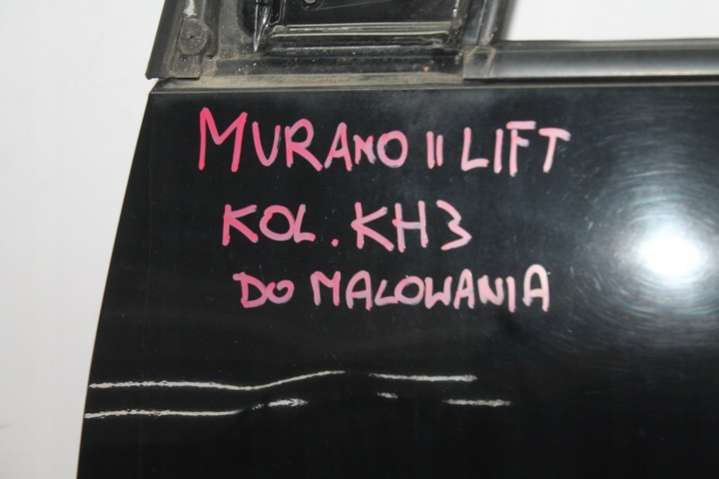 MURANO II LIFT
KOL. KH3
DO MALOWANIA